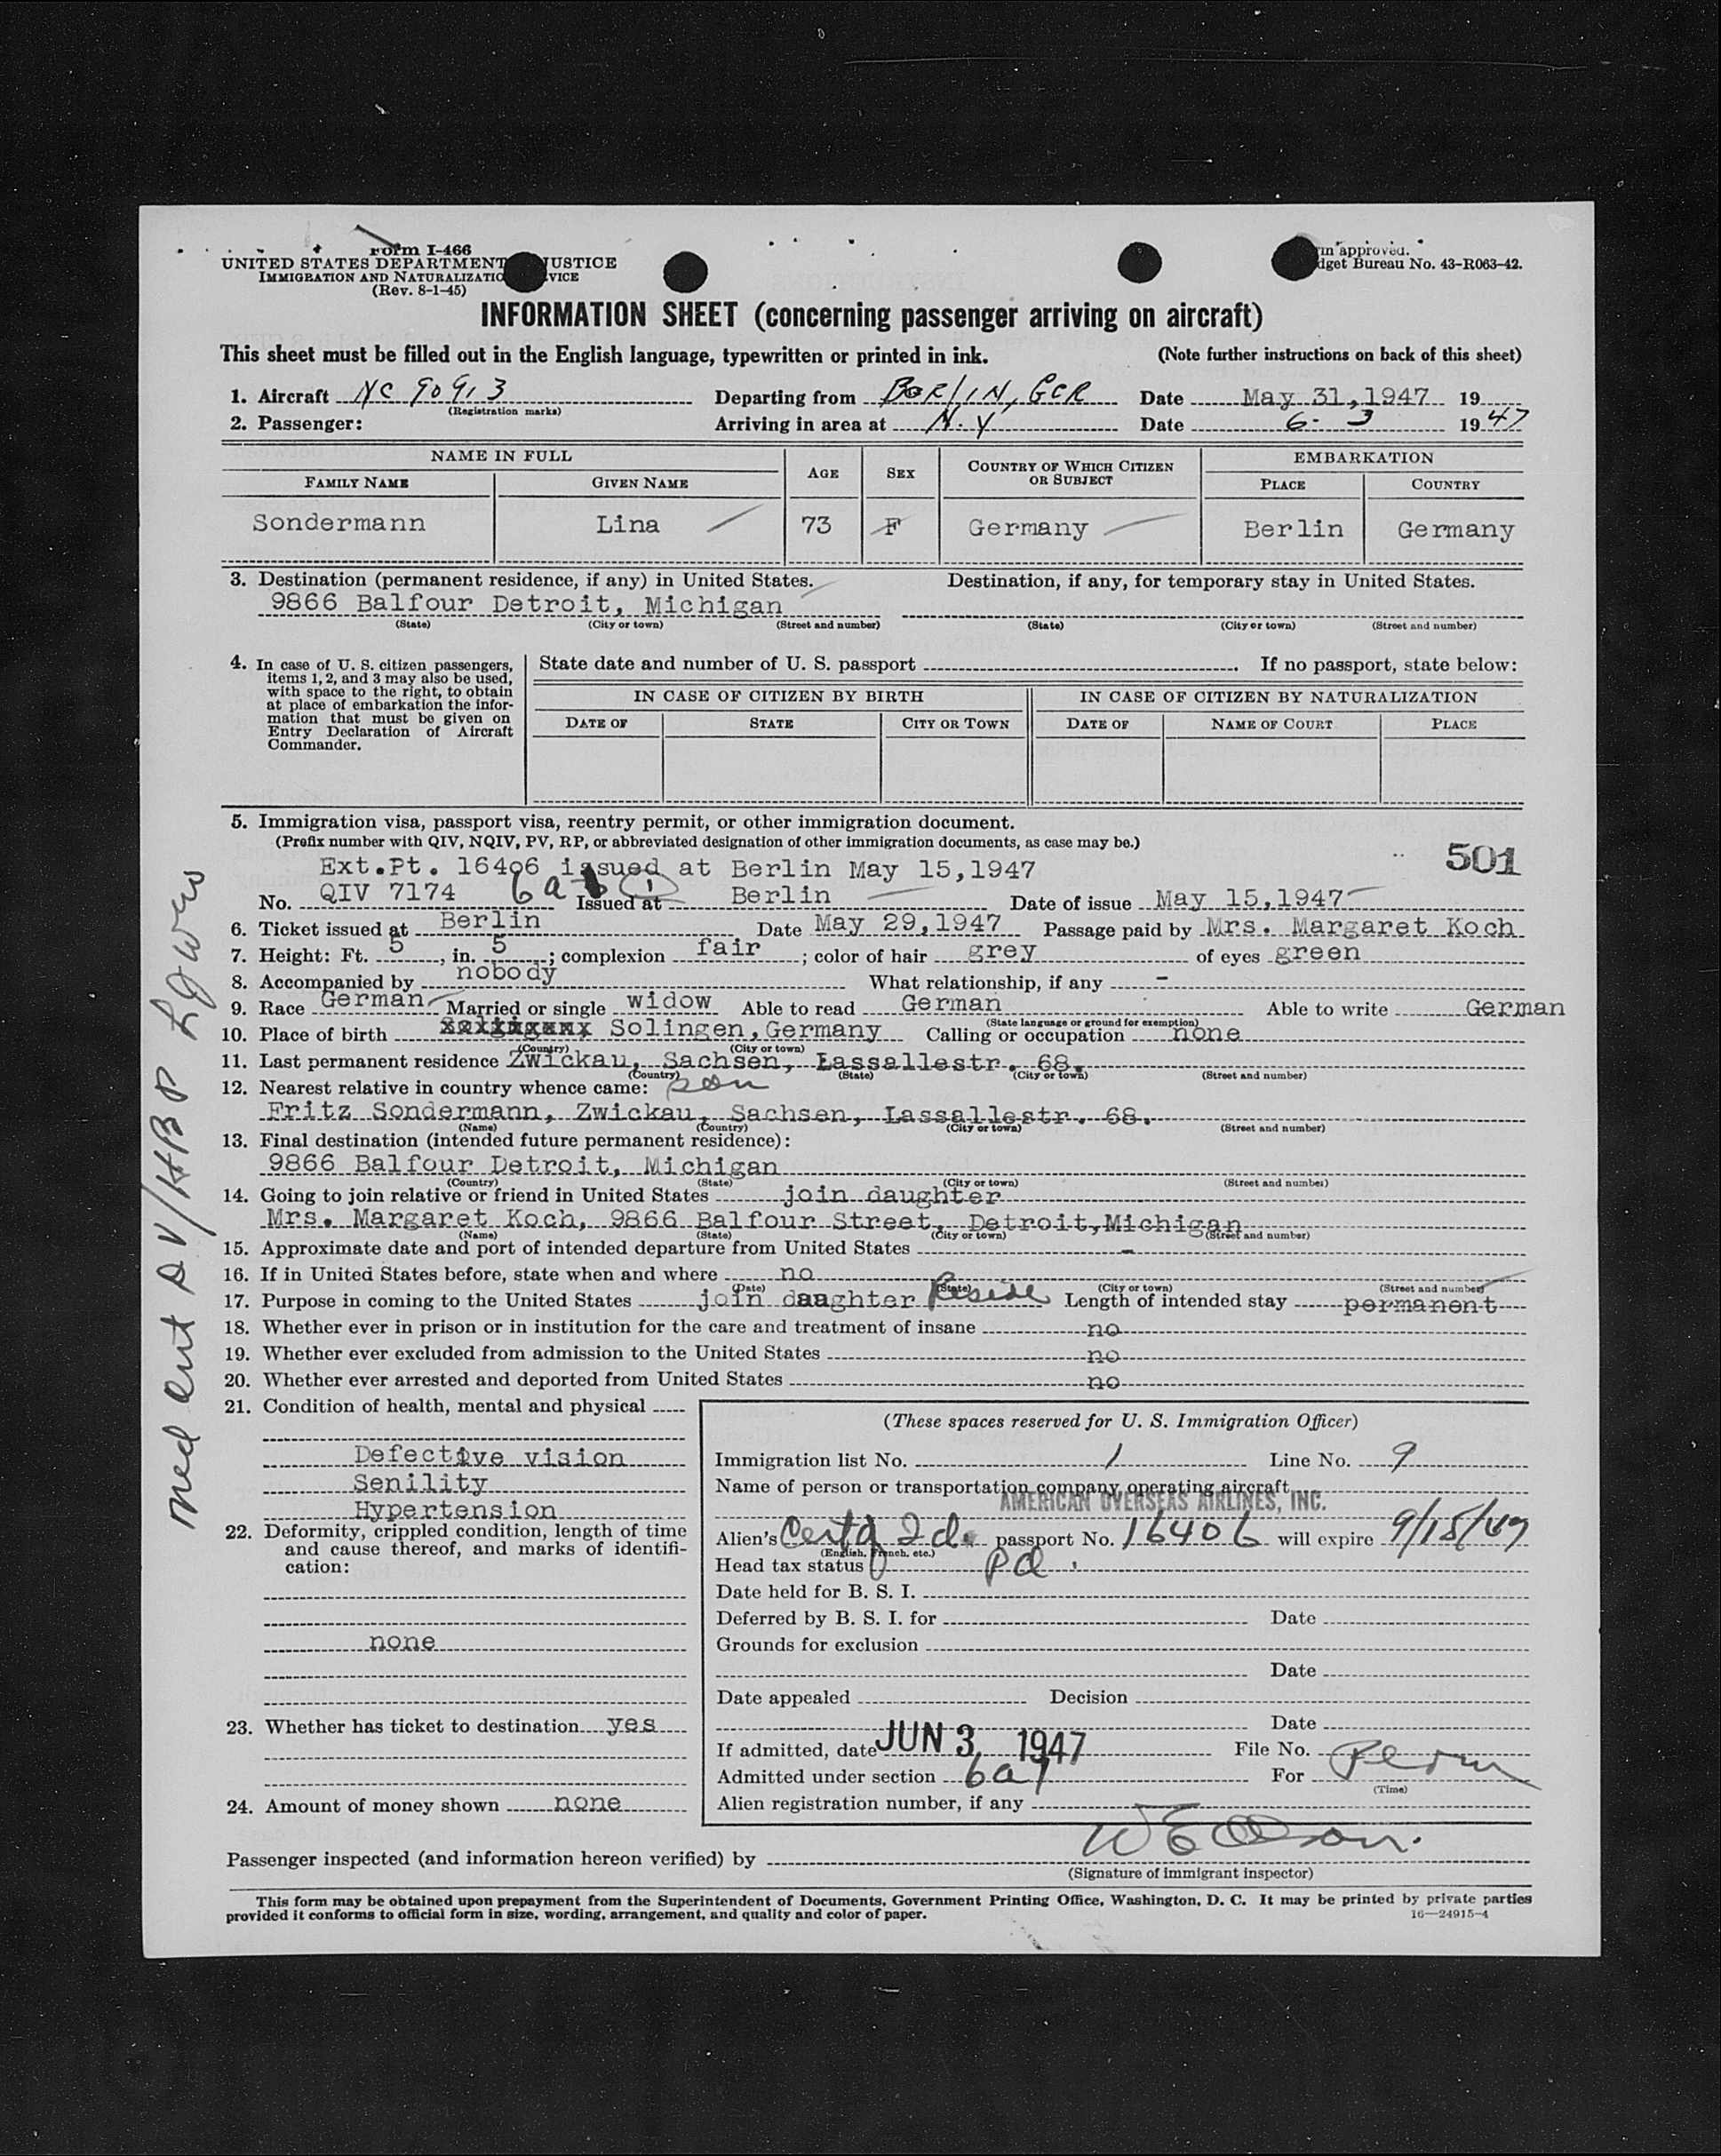 Form I-466
UNITED STATES DEPARTMENT JUSTICE
IMMIGRATION AND NATURALIZATIO VICE
(Rev. 8-1-45)
m approved.
dget Bureau No. 43-R063-42.
INFORMATION SHEET (concerning passenger arriving on aircraft)
This sheet must be filled out in the English language, typewritten or printed in ink. (Note further instructions on back of this sheet)
1. Aircraft NC 90913 Departing from BERLIN, GER Date May 31,1947 19
(Registration marks)
2. Passenger: Arriving in area at N.Y Date 6-3 1947
NAME IN FULL AGE SEX COUNTRY OF WHICH CITIZEN OR SUBJECT EMBARKATION
FAMILY NAME GIVEN NAME PLACE COUNTRY
Sondermann Lina 73 F Germany Berlin Germany
3. Destination (permanent residence, if any) in United States. Destination, if any, for temporary stay in United States.
9866 Balfour Detroit, Michigan
(State) (City or town) (Street and number) (State) (City or town) (Street and number)
4. In case of U. S. citizen passengers,
items 1, 2, and 3 may also be used,
with space to the right, to obtain
at place of embarkation the infor-
mation that must be given on
Entry Declaration of Aircraft
Commander.
State date and number of U. S. passport . If no passport, state below:
IN CASE OF CITIZEN BY BIRTH IN CASE OF CITIZEN BY NATURALIZATION
DATE OF STATE CITY OR TOWN DATE OF NAME OF COURT PLACE
5. Immigration visa, passport visa, reentry permit, or other immigration document.
(Prefix number with QIV, NQIV, PV, RP, or abbreviated designation of other immigration documents, as case may be.)
501
Ext.Pt. 16406 issued at Berlin May 15,1947
No. QIV 7174 6a 1 Issued at Berlin Date of issue May 15,1947
6. Ticket issued at Berlin Date May 29,1947 Passage paid by Mrs. Margaret Koch
7. Height: Ft. 5, in. 5; complexion fair; color of hair grey of eyes green
8. Accompanied by nobody What relationship, if any -
9. Race German Married or single widow Able to read German Able to write German
(State language or ground for exemption)
10. Place of birth Solingen, Germany Calling or occupation none
(Country) (City or town)
11. Last permanent residence Zwickau, Sachsen, Lassallestr. 68.
(Country) (State) (City or town) (Street and number)
12. Nearest relative in country whence came: son
Fritz Sondermann, Zwickau, Sachsen, Lassallestr. 68.
(Name) (Country) (City or town) (Street and number)
13. Final destination (intended future permanent residence):
9866 Balfour Detroit, Michigan
(Country) (State) (City or town) (Street and number)
14. Going to join relative or friend in United States join daughter
Mrs. Margaret Koch, 9866 Balfour Street, Detroit,Michigan
(Name) (State) (City or town) (Street and number)
15. Approximate date and port of intended departure from United States -
16. If in United States before, state when and where no
(Date) (State) (City or town) (Street and number)
17. Purpose in coming to the United States join daughter Reside Length of intended stay permanent
18. Whether ever in prison or in institution for the care and treatment of insane no
19. Whether ever excluded from admission to the United States no
20. Whether ever arrested and deported from United States no
21. Condition of health, mental and physical
Defective vision
Senility
Hypertension
22. Deformity, crippled condition, length of time
and cause thereof, and marks of identifi-
cation:
none
23. Whether has ticket to destination yes
24. Amount of money shown none
(These spaces reserved for U. S. Immigration Officer)
Immigration list No. 1 Line No. 9
Name of person or transportation company operating aircraft
AMERICAN OVERSEAS AIRLINES, INC.
Alien's Cert of Id. passport No. 16406 will expire 9/15/47
(English, French, etc.)
Head tax status Pd.
Date held for B. S. I.
Deferred by B. S. I. for Date
Grounds for exclusion
Date
Date appealed Decision
Date
If admitted, date JUN 3 1947 File No.
Admitted under section 6a1 For Perm
(Time)
Alien registration number, if any
Passenger inspected (and information hereon verified) by W E Olson.
(Signature of immigrant inspector)
This form may be obtained upon prepayment from the Superintendent of Documents, Government Printing Office, Washington, D. C. It may be printed by private parties
provided it conforms to official form in size, wording, arrangement, and quality and color of paper.
16—24915-4
med cert DV/HBP